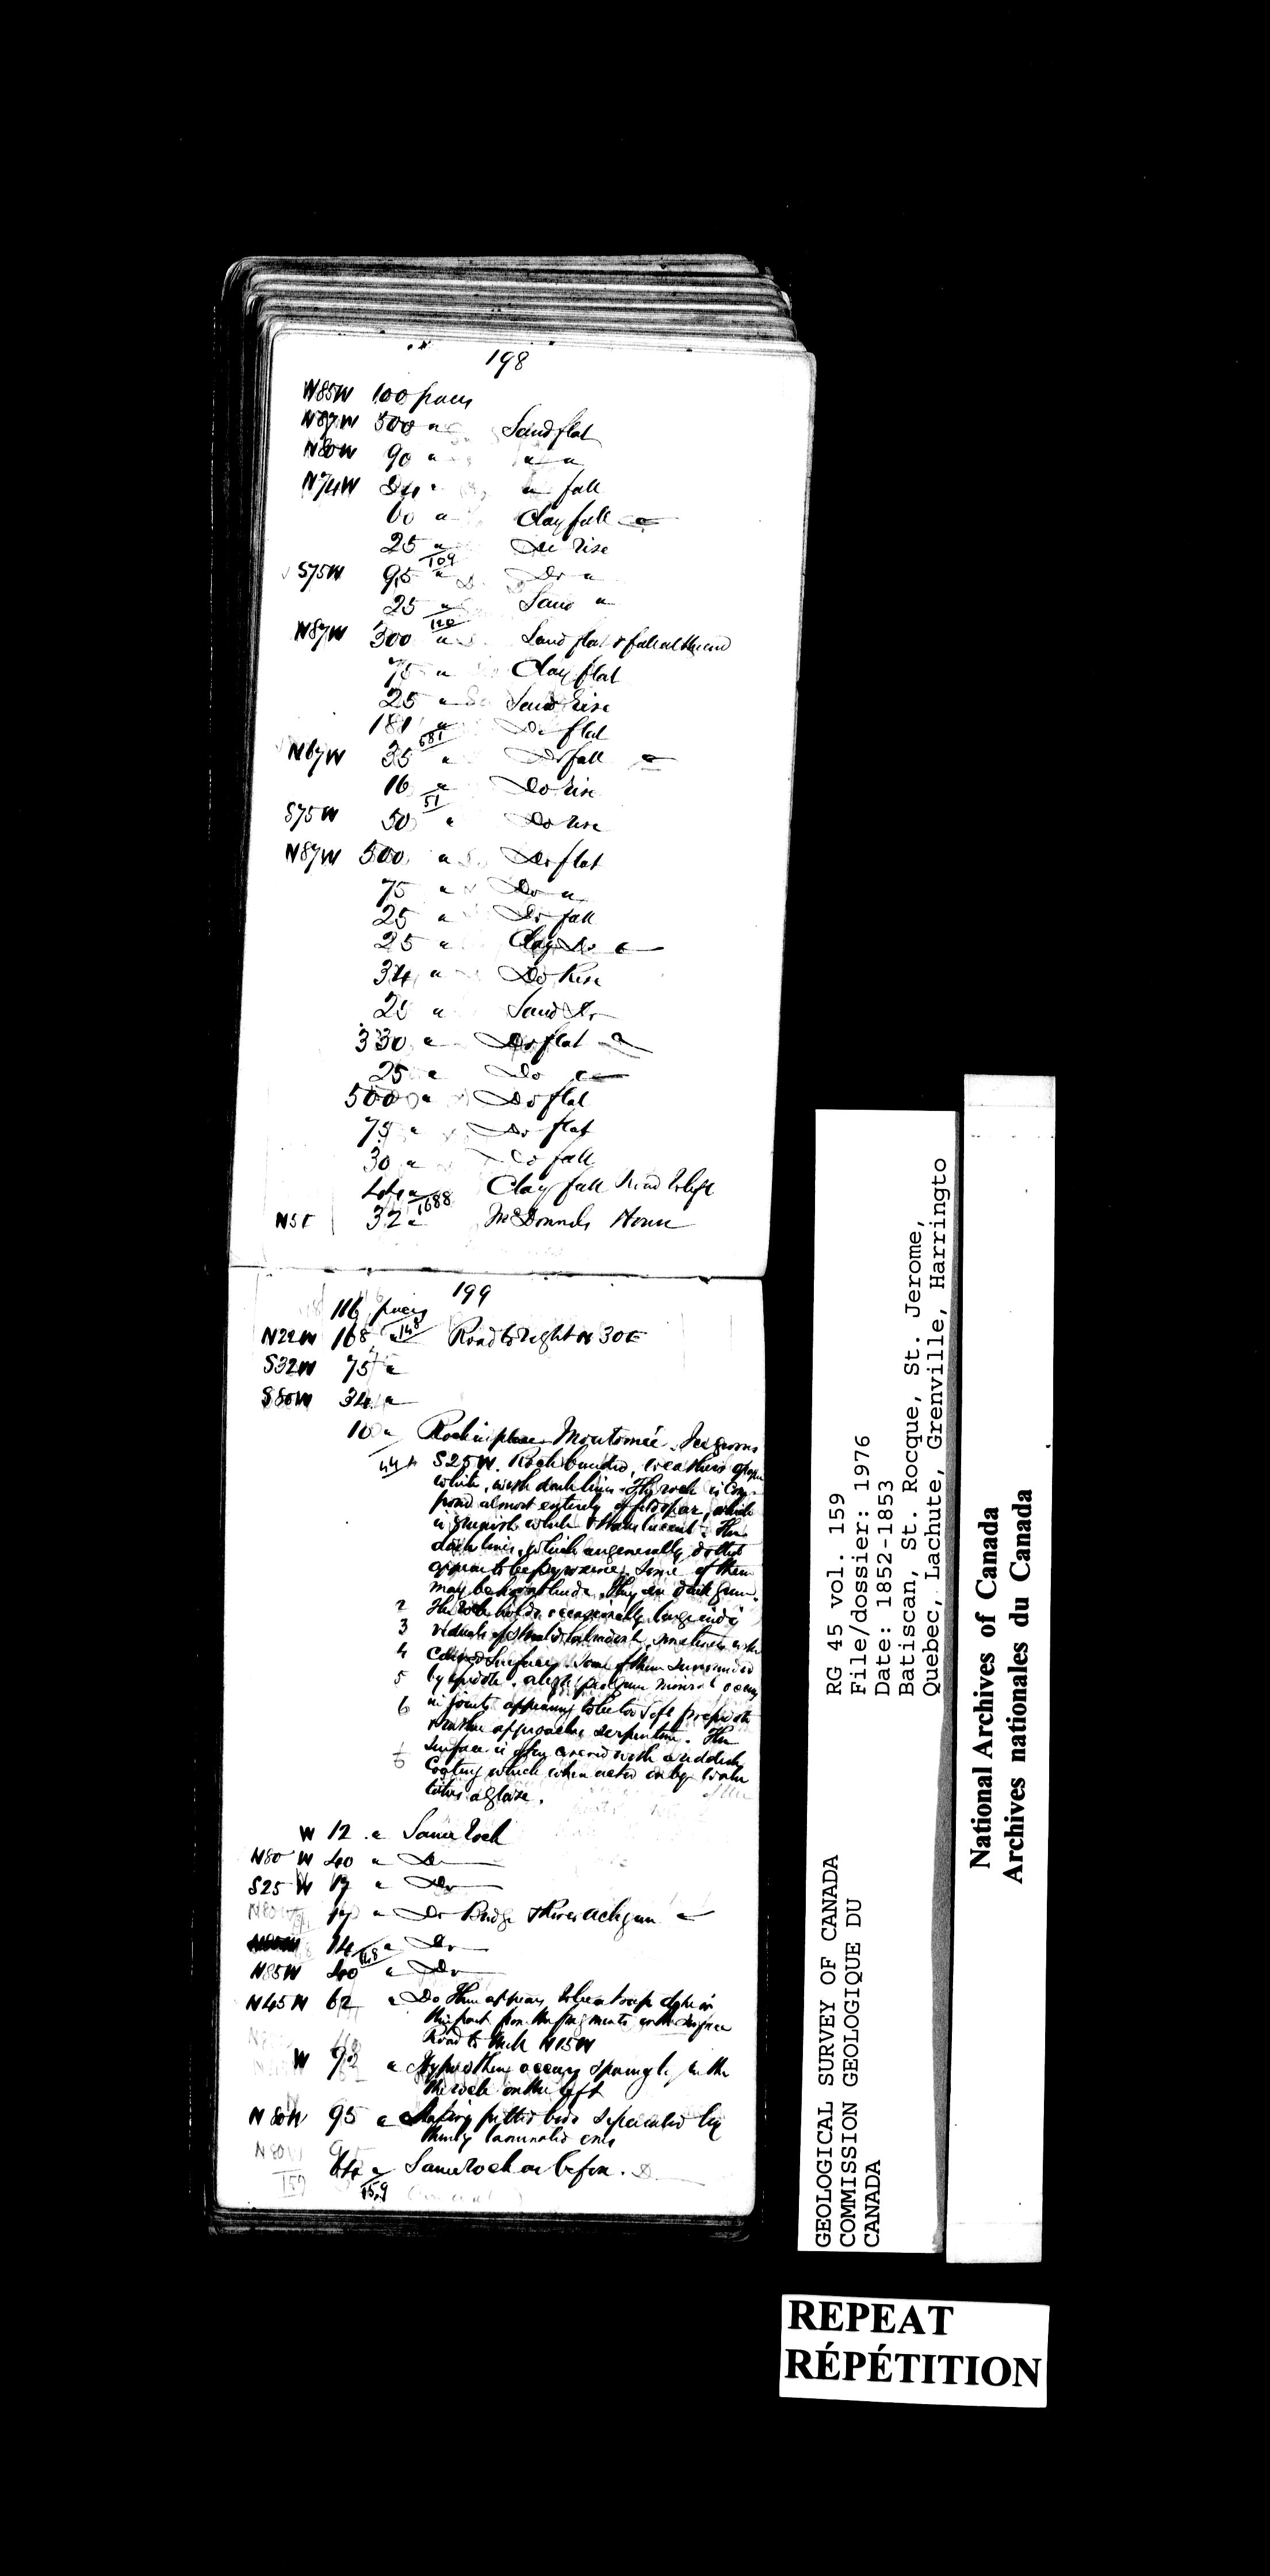 198
N85W 100 paces
N87W 500 " Sand flat
N80W 90 " " "
N74W 84 " " fall
60 " Clay fall
25 " Do rise
109
S75W 95 " Do "
25 " Sand "
120
N87W 300 " Sand flat & fall at the end
75 " Clay flat
25 " Sand rise
181 " Do flat
581
N67W 35 " Do fall
16 " Do rise
51
S75W 50 " Do rise
N87W 500 " Do flat
75 " Do "
25 " Do fall
25 " Clay Do
34 " Do Rise
25 " Sand Do
330 " Do flat
25 " Do
500 " Do flat
75 " Do flat
30 " Do fall
44 " Clay fall Road to left
1688
N5E 32 " McDonnels House
199
116 paces
148
N22W 168 " Road to right N 30E
S32W 75 "
S80W 34 "
10 " Rock in place
S25W. Rock banded, weathers opaque
white, with dark lines. The rock is com-
posed almost entirely of feldspar, which
is greenish white & translucent. The
dark lines, which are generally dotted
appear to be pyroxene. Some of them
may be hornblende. They are dark green.
2 The rock holds occasionally large indi
3 viduals of sometimes with
4 surfaces some of them surrounded
5 by mineral occurs
6 in joints appearing to be too soft for epidote
& rather approaches serpentine. The
surface is often covered with a reddish
coating which when acted on by water
takes a glaze.
W 12 " Same rock
N80W 40 " Do
S25W 17 " Do
17 " Do Bridge & River Achigan
14 " Do
148
N85W 40 " Do
N45W 62 " Do There appears to be a trap dyke in
this part from the fragments on the surface
Road to N15W
W 92 " Hypersthene occurs sparingly in the
the rock on the left
N80W 95 " pitted beds separated by
thinly laminated ones
64 " Same rock as before.
159
GEOLOGICAL SURVEY OF CANADA
COMMISSION GEOLOGIQUE DU
CANADA
RG 45 vol. 159
File/dossier: 1976
Date: 1852-1853
Batiscan, St. Rocque, St. Jerome,
Quebec, Lachute, Grenville, Harringto
National Archives of Canada
Archives nationales du Canada
REPEAT
RÉPÉTITION